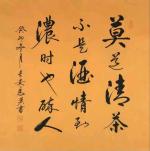 莫道清茶
不是酒情到
濃时也醉人